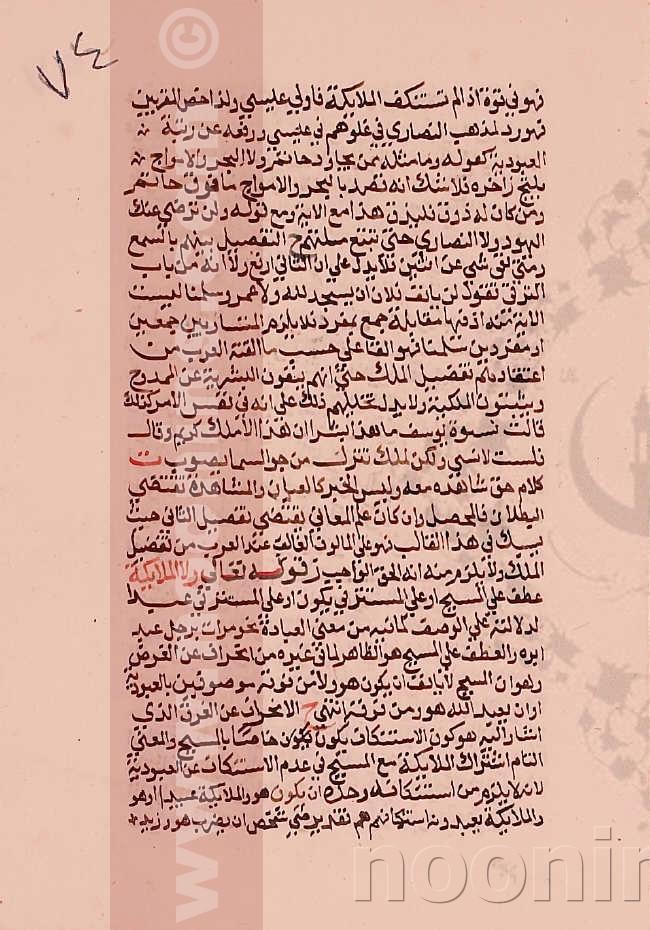 ٧٤
فهو في قوة اذ الم تستنكف الملايكة فاولي عليسي ولذا خص المقربين
فهو رد لمذهب النصاري في غلوهم في عليسي ورفعه عن رتبة
العبودية كقوله وما مثله ممن يجاود حاتم ولا البحر والامواج
يلتج زاخره فلا شك انه قصد بالبحر والامواج ما فوق حاتم
ومن كان له ذوق فليذق هذا مع الاية ومع قوله ولن ترضي عنك
اليهود ولا النصاري حتي تتبع ملتهم التفصيل بينهم بالسمع
ومتي نفي شي عن اثنين فلا يدل علي ان الثاني ارفع ولا انه من باب
الترقي تقول لن يانف فلان ان يسجد لله ولا عمر وسلمنا ليست
الاية منه اذ فيها مقابلة جمع بمفرد فلا يلزم المتساويين جمعين
او مفردين سلمنا فهو القا علي حسب ما القته العرب من
اعتقادهم تفضيل الملك حتي انهم ينفون البشرية عن الممدوح
ويثبتون الملكية ولا يدل تخيلهم ذلك علي انه في نفس الامر كذلك
قالت نسوة يوسف ما هذا بشرا ان هذا الا ملك كريم وقال
فلست لانسي ولكن لملاك تنزل من جو السما يصوب ت
كلام حق شاهده معه وليس الخبر كالعيان والمشاهدة تقتضي
البطلان فالمحصل وان كان علم المعاني يقتضي تفصيل الثاني
في هذا القالب فهو علي المالوف الغالب عند العرب من تفضيل
الملك ولا يلزم منه انه الحق الواجب قوله تعالي ولا الملايكة
عطف علي المسيح او علي المستتر في يكون او علي المستتر في عبدا
لدلالته علي الوصف لما فيه من معني العبادة نحو مررت برجل عبد
ابوه والعطف علي المسيح هو الظاهر لما في غيره من انحراف عن الغرض
وهو ان المسيح لا يانف ان يكون هو ولا من فوقه موصوفين بالعبودية
او ان يعبد الله هو ومن فوقه انتهي ح الانحراف عن الغرق الذي
اشار اليه هو كون الاستنكاف يكون يكون خاصا بالمسيح والمعني
التام اشتراك الملايكة مع المسيح في عدم الاستنكاف عن العبودية
لانه لا يلزم من استنكافه وحده ان يكون هو والملايكة عبيدا او هو
والملايكة يعبدونه استنكافهم هم فقد يرضي شخص ان يضرب هو وزيد
noonin